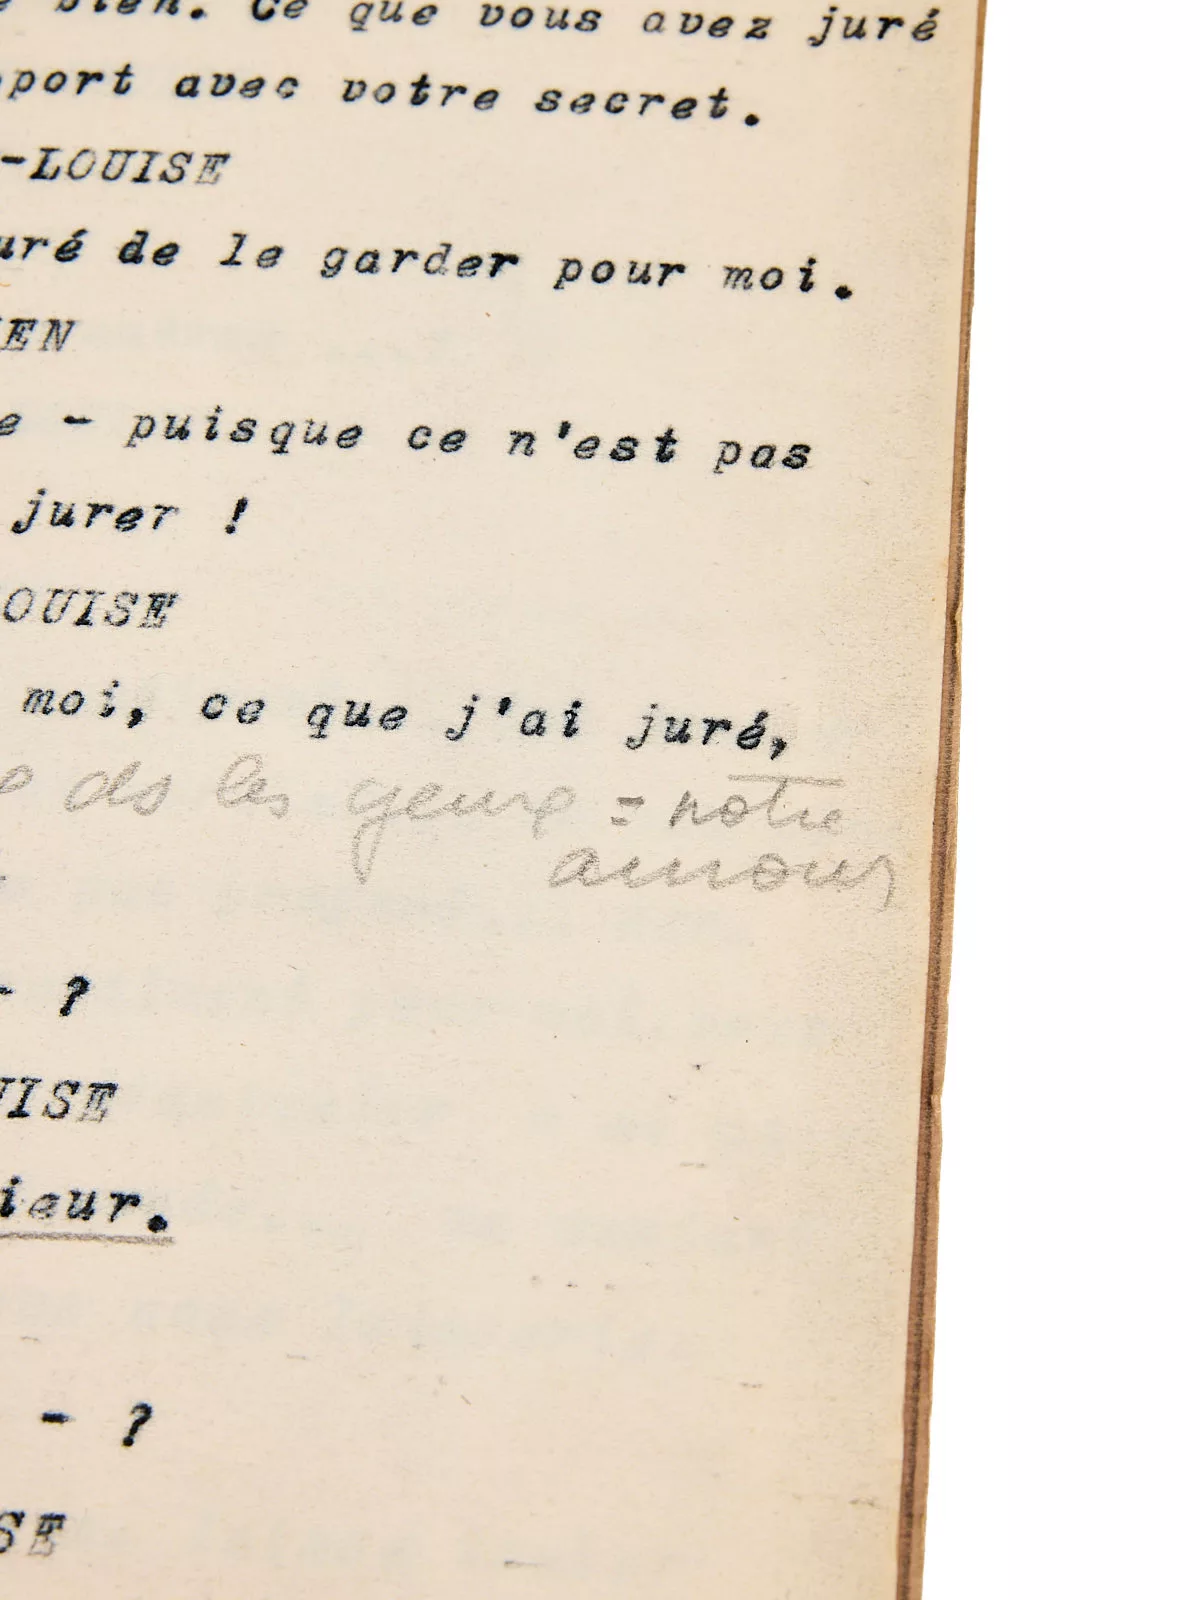 bien. Ce que vous avez juré
pport avec votre secret.
-LOUISE
uré de le garder pour moi.
IEN
e - puisque ce n'est pas
jurer !
OUISE
moi, ce que j'ai juré,
ds les = notre
amour
- ?
UISE
ieur.
- ?
SE